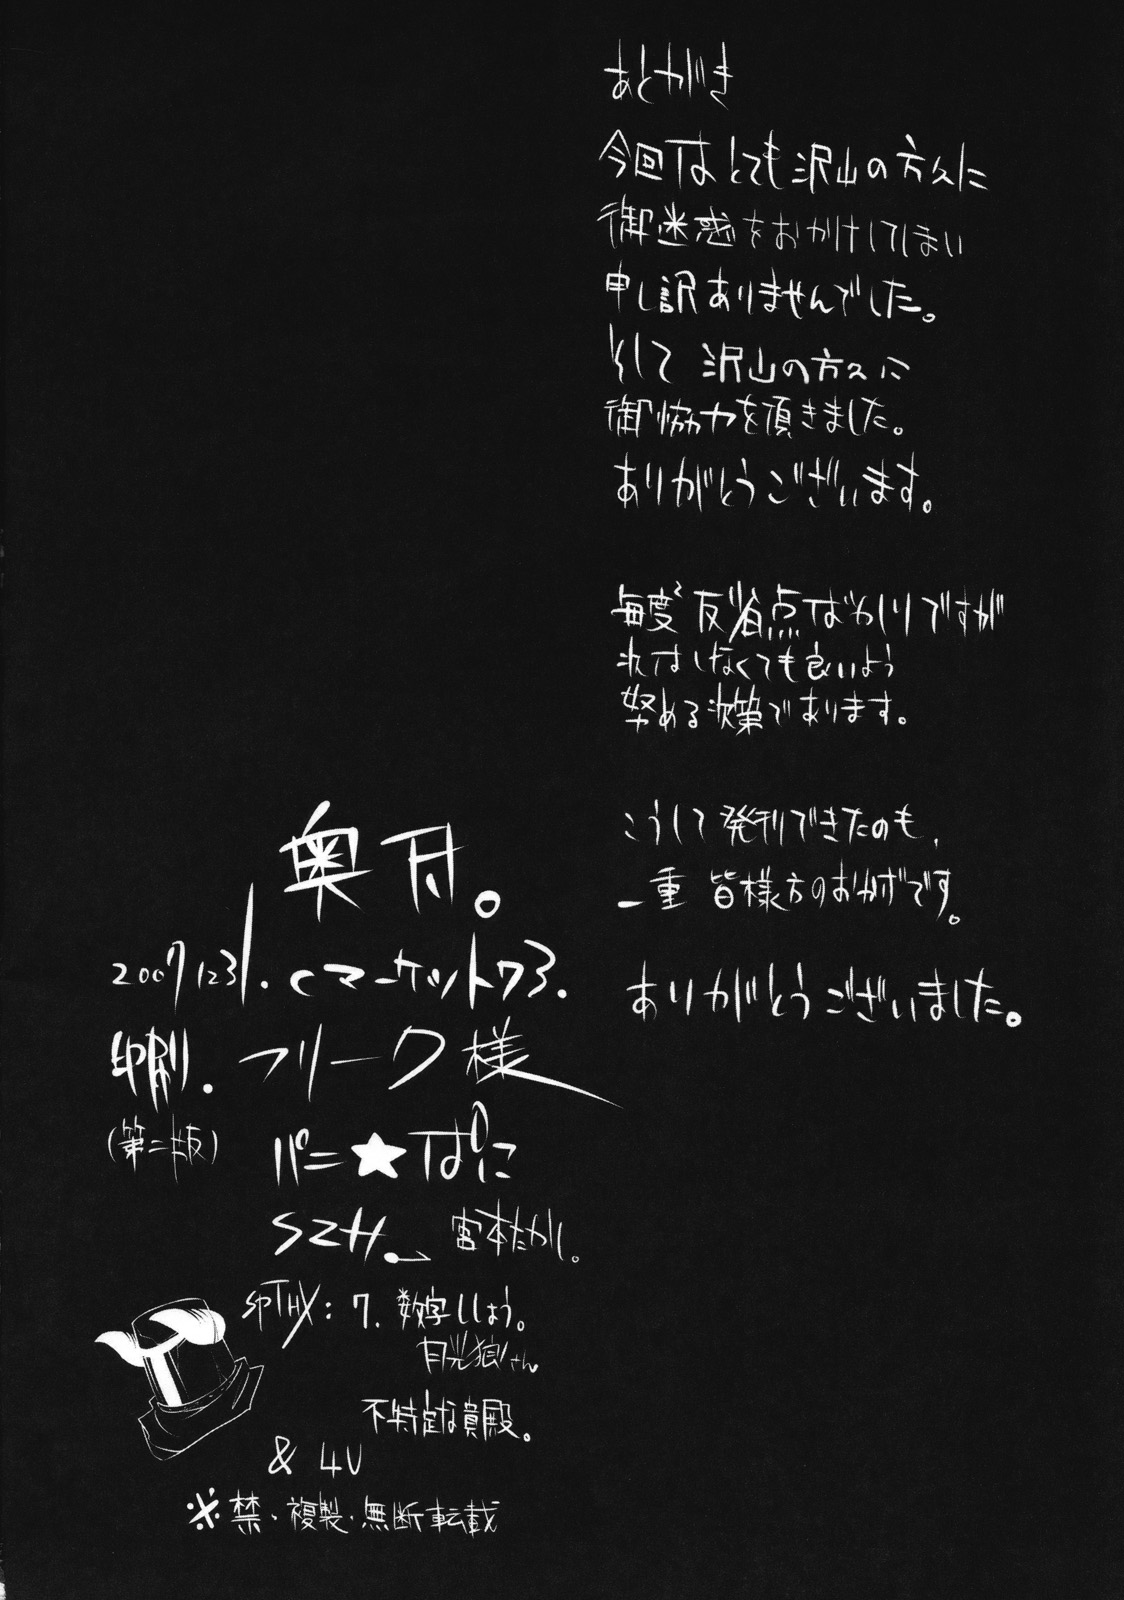 あとがき
今回はとても沢山の方々に
御迷惑をおかけしてしまい
申し訳ありませんでした。
そして 沢山の方々に
御協力を頂きました。
ありがとうございます。
毎度 反省点ばかりですが
次はしなくても良いよう
努める次第であります。
こうして発刊できたのも、
一重 皆様方のおかげです。
ありがとうございました。
奥付。
2007 1231. cマーケット73.
印刷. フリーク様
(第二版)
パニ★ぱに
SZH. 宮本たかし。
SPTHX: 7. 数字ししょう。
月光狼さん
不特定な貴殿。
& 4U
※禁・複製・無断転載